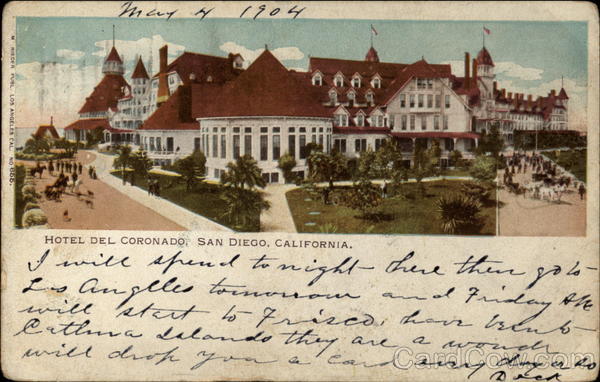 May 4 1904
M. RIEDER PUBL. LOS ANGELES CAL. NO 888.
HOTEL DEL CORONADO, SAN DIEGO, CALIFORNIA.
I will spend to night here then go to
Los Angelles tomorrow and Friday
will start to Frisco, have been to
Islands they are a wonder
will drop you a card every day or so
CardCow.com